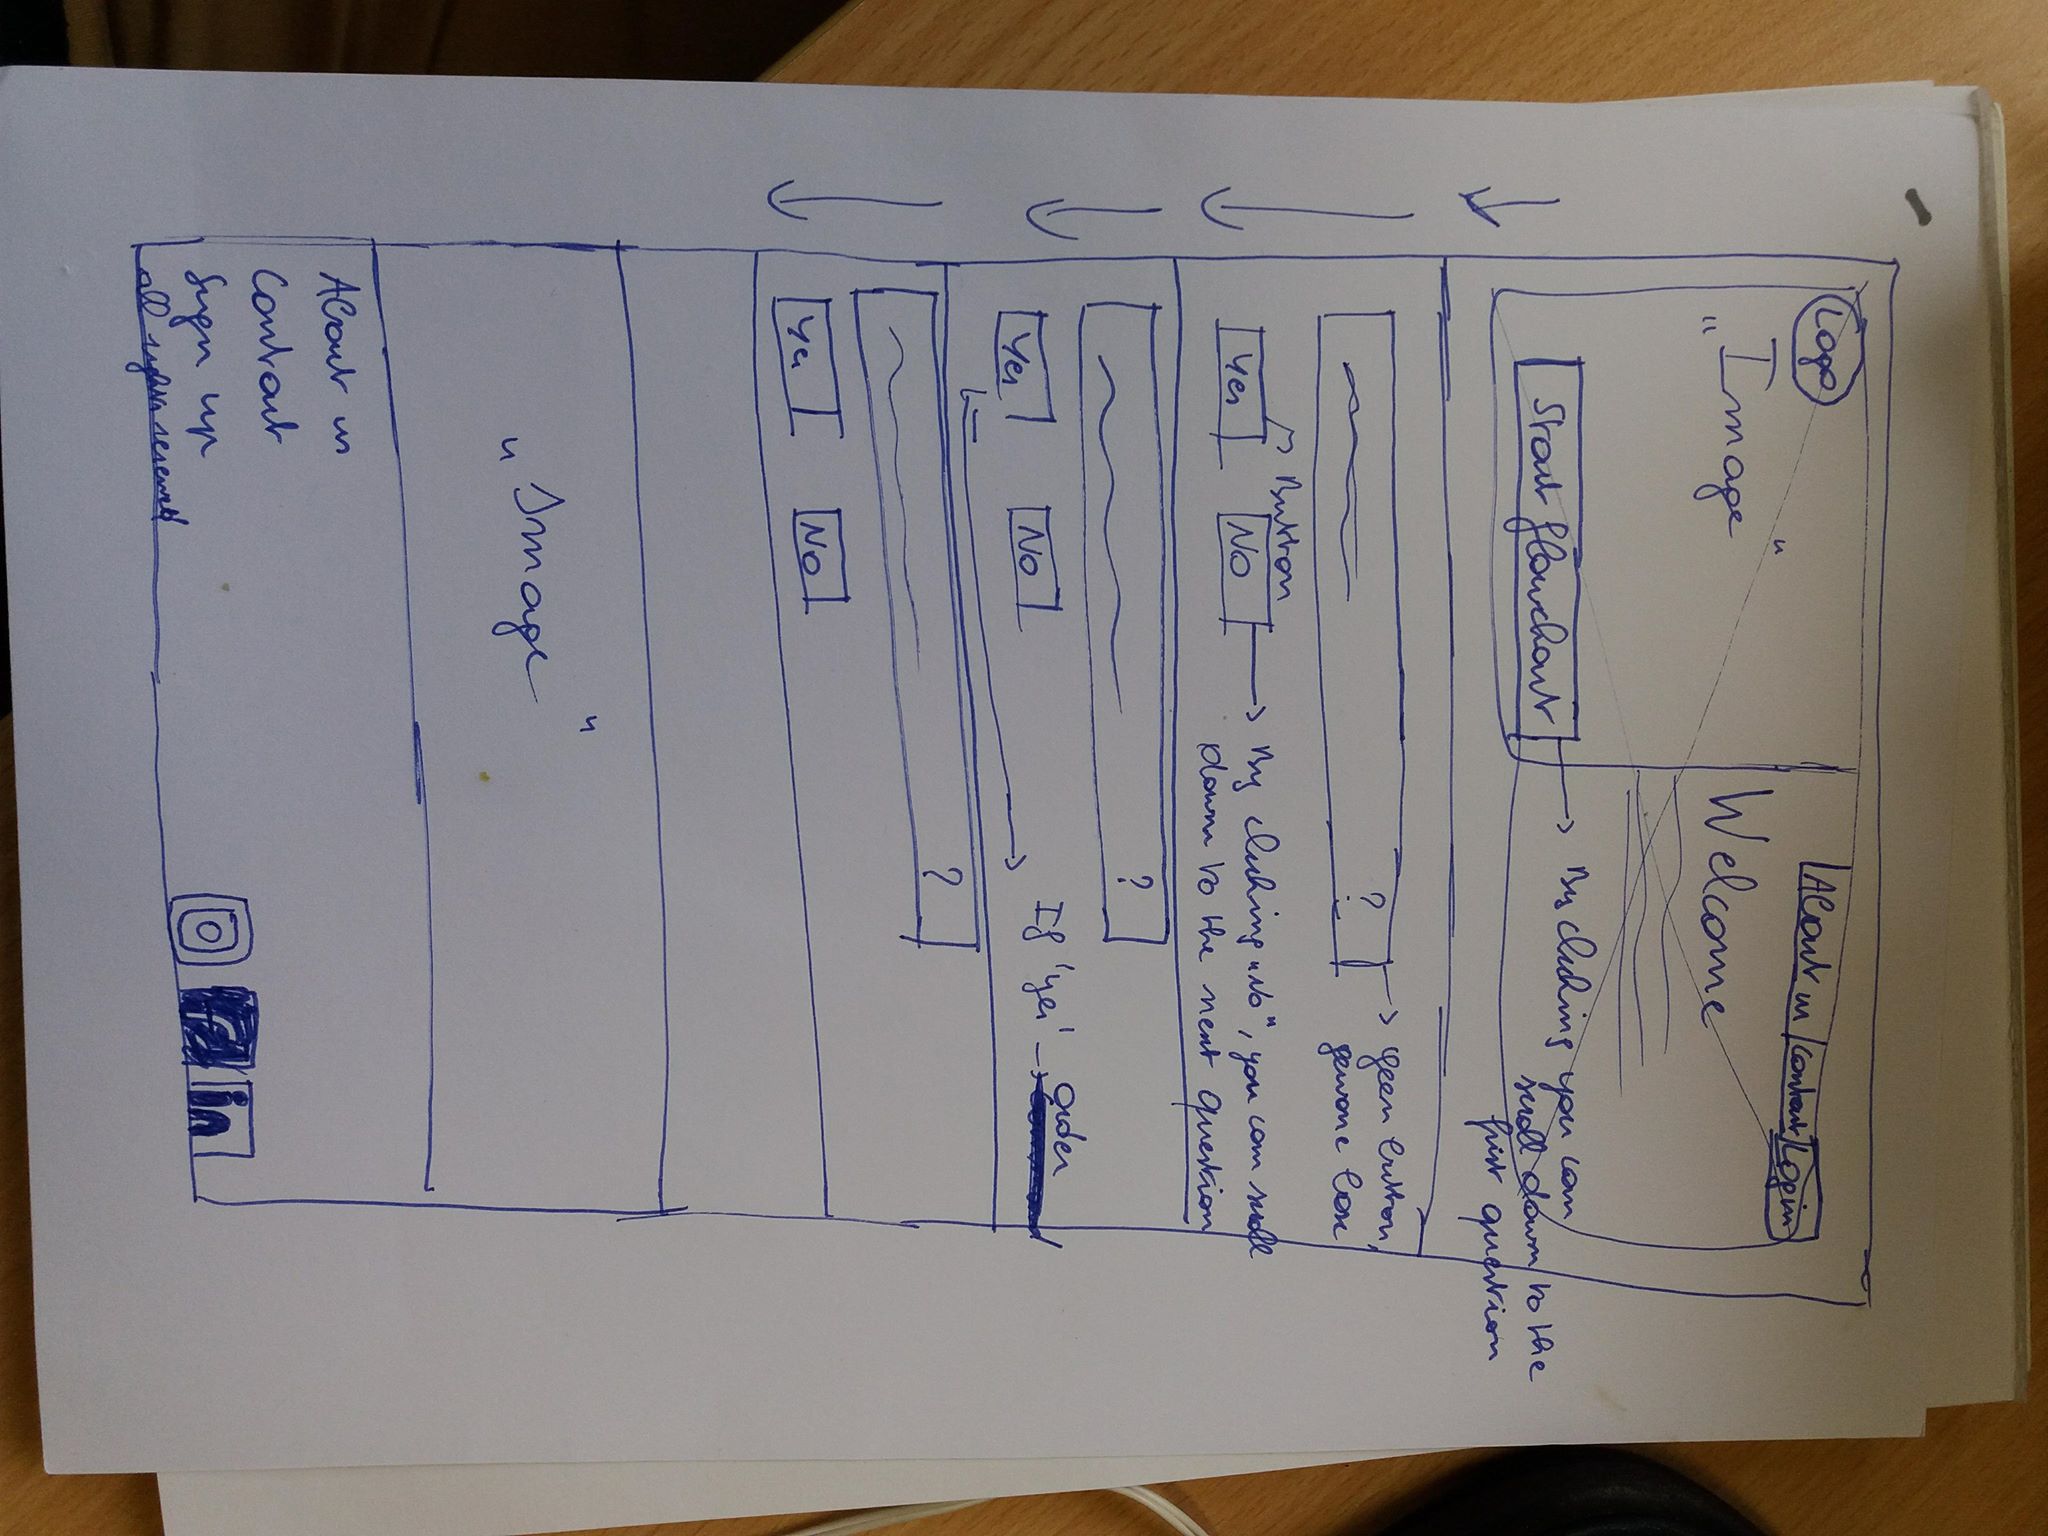 Logo
About us Contact Login
„Image"
Welcome
Start flowchart
By clicking you can
scroll down to the
first question
?
geen button,
gewone box
Button
Yes
NO
By clicking „No", you can scroll
down to the next question
?
Yes
NO
If 'yes' order
?
Yes
NO
„Image"
About us
Contact
Sign up
all rights reserved
in